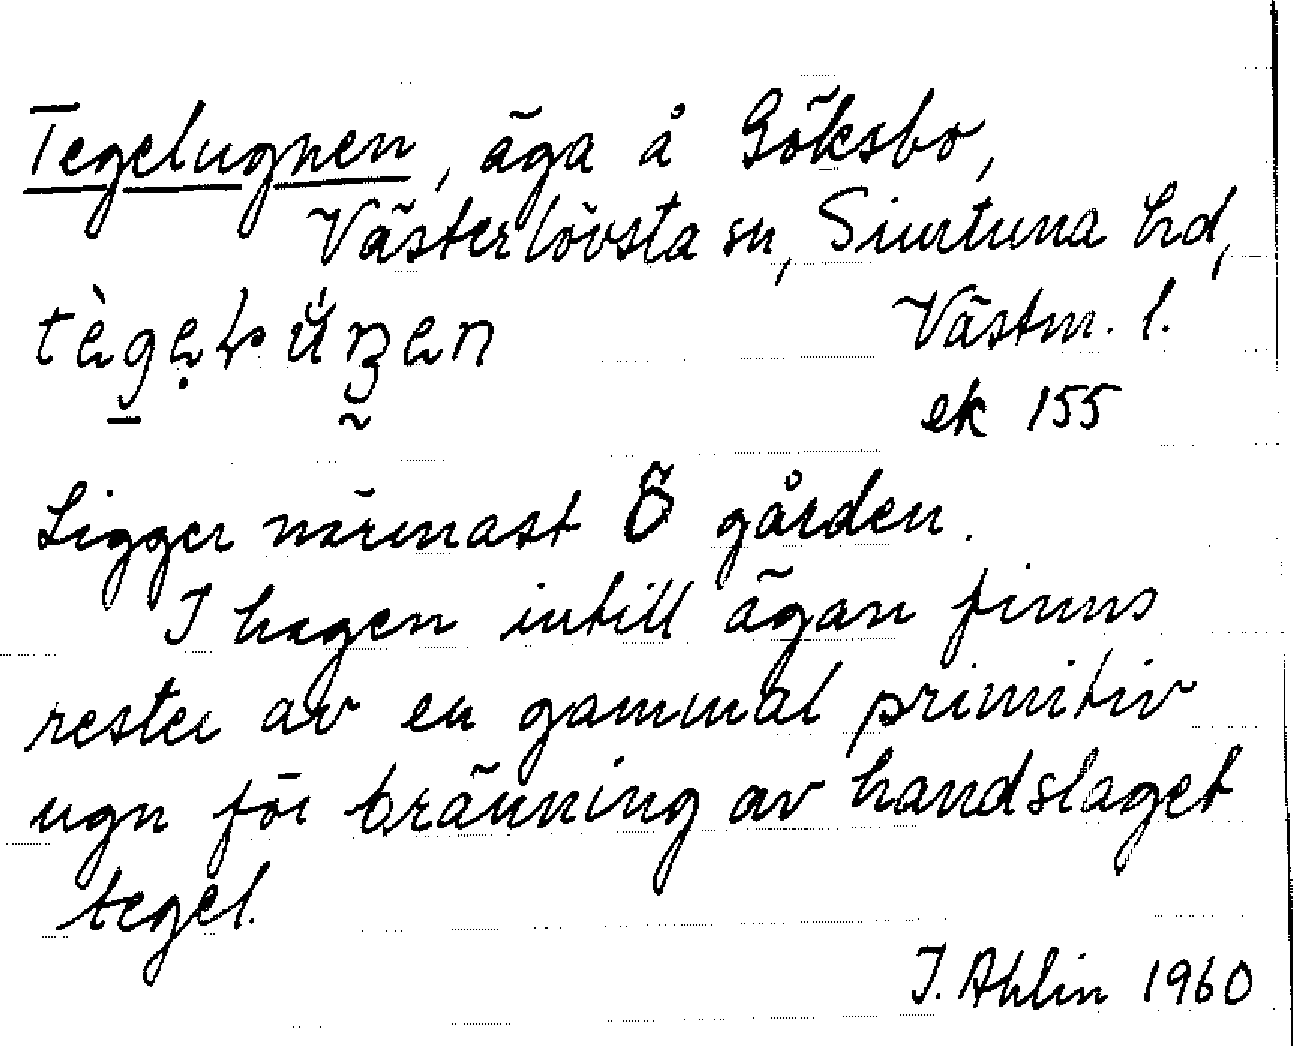 Tegelugnen, äga å Göksbo,
Västerlövsta sn, Simtuna hd,
Västm. l.
ek 155
Ligger närmast Ö gården.
I hagen intill ägan finns
rester av en gammal primitiv
ugn för bränning av handslaget
tegel.
J. Ahlin 1960